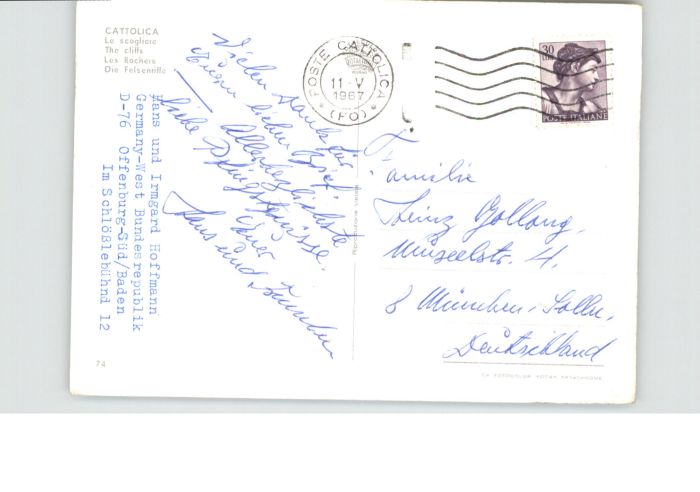 CATTOLICA
Le scogliere
The cliffs
Les Rochers
Die Felsenriffe
POSTE CATTOLICA
11-V
1967
(FO)
30
LIRE
POSTE ITALIANE
Vielen Dank für
Euren lieben Brief.
Allerherzlichste
Liebe Pfingstgrüsse.
Euer
Hans und
Hans und Irmgard Hoffmann
Germany-West Bundesrepublik
D-76 Offenburg-Süd/Baden
Im Schlößlebühnd 12
Familie
Heinz Gollong,
4,
8 München, Solln,
Deutschland
74